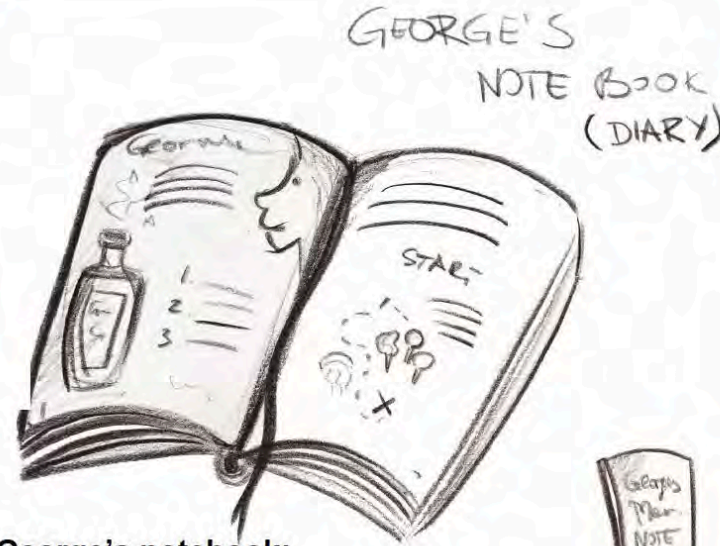 GEORGE'S
NOTE BOOK
(DIARY)
START
1.
2
3
George's notebook:
NOTE